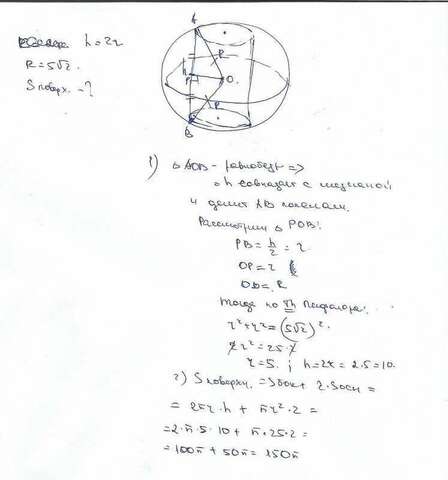 h = 2r
R = 5√2
Sповерх. - ?
A
h
R
P
O
R
B
1) △ AOB - равнобедр =>
h совпадает с медианой
и делит AB пополам.
Рассмотрим △ POB:
PB = h/2 = r
OP = r
OB = R
Тогда по Th Пифагора:
r² + r² = (5√2)²
2r² = 25·2
r = 5. ; h = 2r = 2·5 = 10.
2) Sповерхн. = Sбок + 2·Sосн =
= 2πr·h + πr²·2 =
= 2·π·5·10 + π·25·2 =
= 100π + 50π = 150π